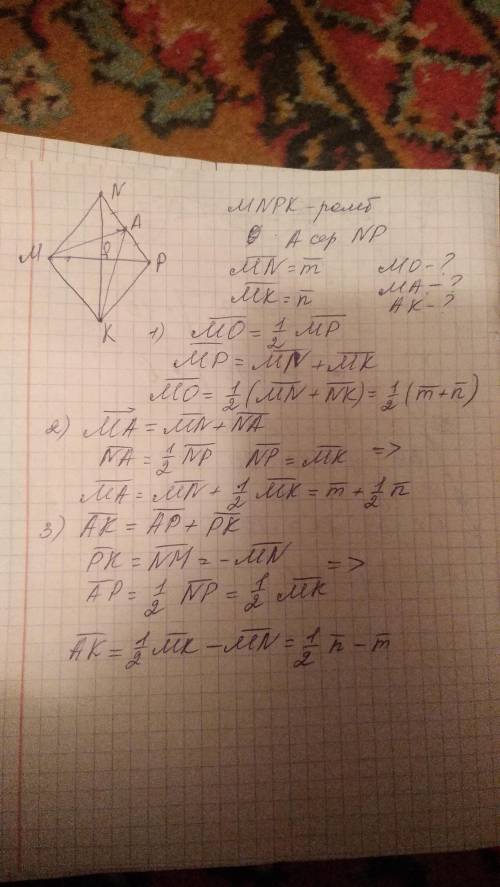 N
A
M
P
K
MNPK - ромб
A сер NP
M̅N̅ = m̅ MO - ?
M̅K̅ = n̅ MA - ?
AK - ?
1) M̅O̅ = 1/2 M̅P̅
M̅P̅ = M̅N̅ + M̅K̅
M̅O̅ = 1/2 (M̅N̅ + N̅K̅) = 1/2 (m̅ + n̅)
2) M̅A̅ = M̅N̅ + N̅A̅
N̅A̅ = 1/2 N̅P̅ N̅P̅ = M̅K̅ =>
M̅A̅ = M̅N̅ + 1/2 M̅K̅ = m̅ + 1/2 n̅
3) A̅K̅ = A̅P̅ + P̅K̅
P̅K̅ = N̅M̅ = - M̅N̅ =>
A̅P̅ = 1/2 N̅P̅ = 1/2 M̅K̅
A̅K̅ = 1/2 M̅K̅ - M̅N̅ = 1/2 n̅ - m̅